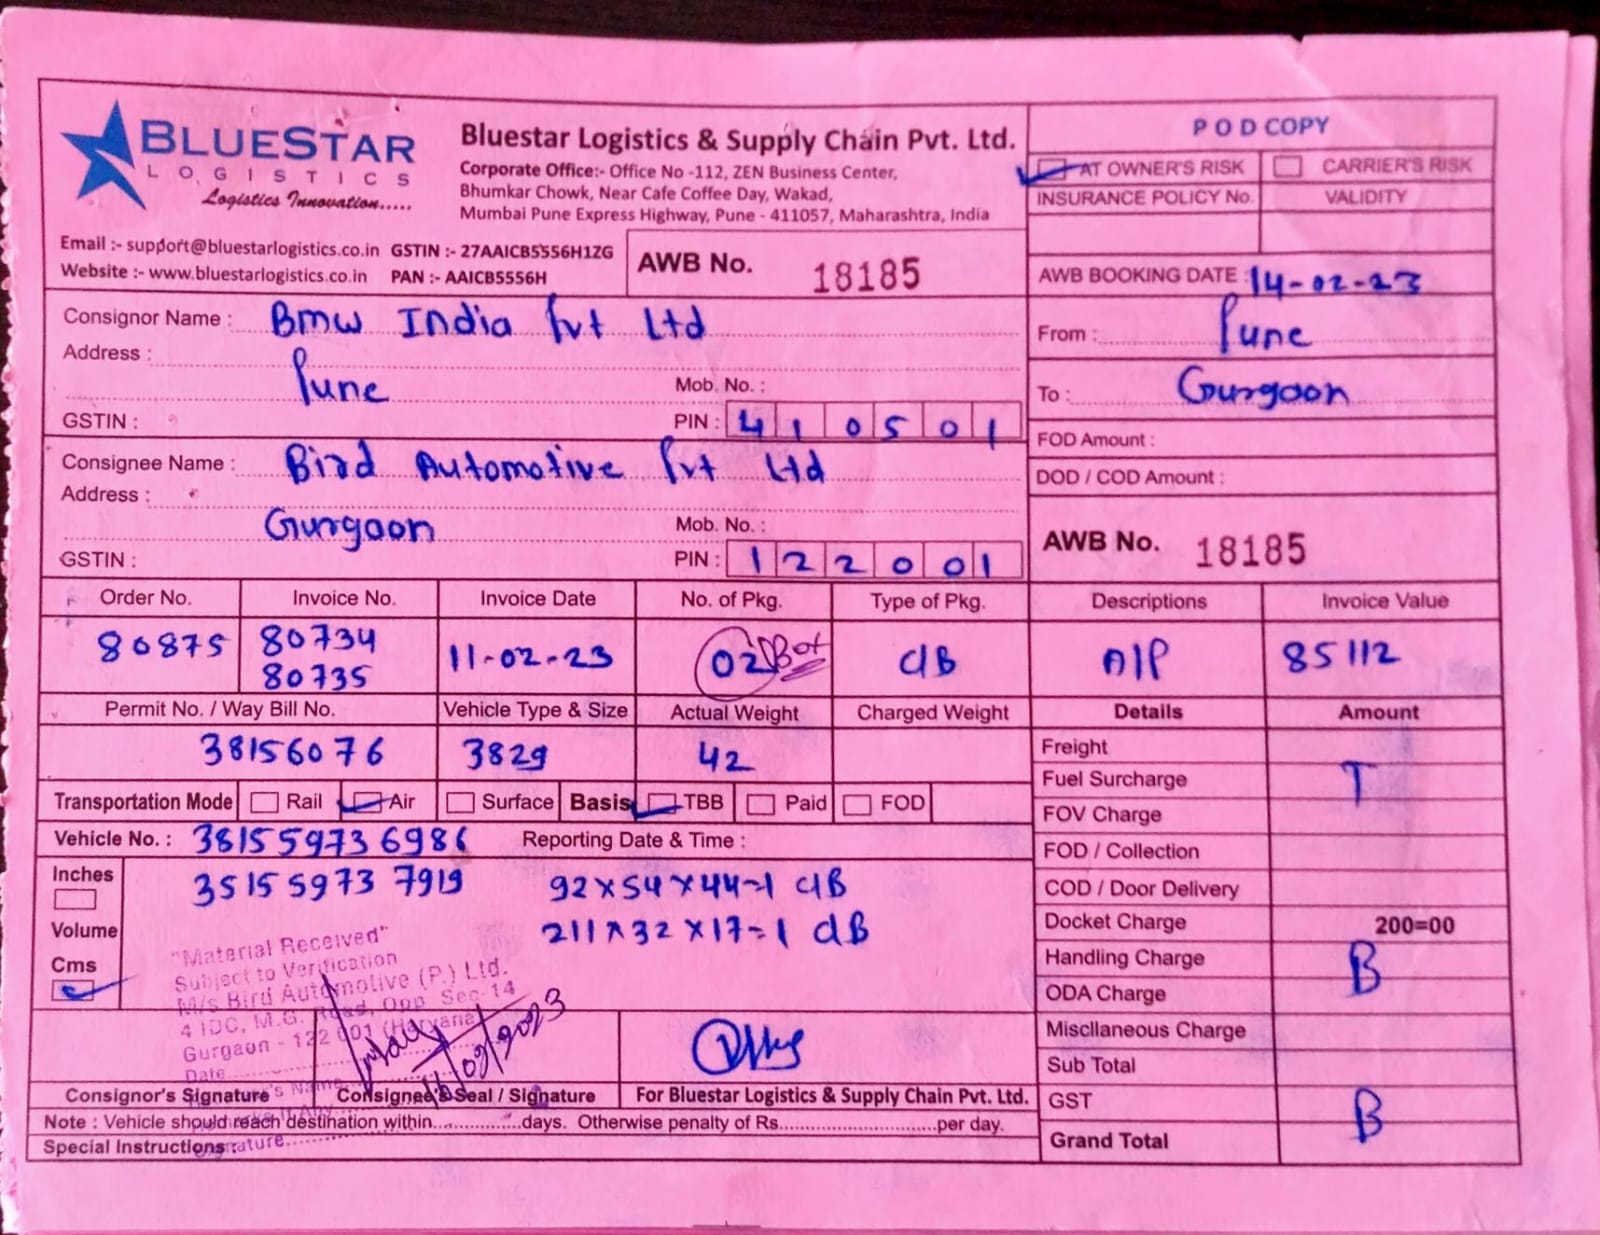 BLUESTAR
LOGISTICS
Logistics Innovation.....
Bluestar Logistics & Supply Chain Pvt. Ltd.
Corporate Office:- Office No -112, ZEN Business Center,
Bhumkar Chowk, Near Cafe Coffee Day, Wakad,
Mumbai Pune Express Highway, Pune - 411057, Maharashtra, India
Email :- support@bluestarlogistics.co.in GSTIN :- 27AAICB5556H1ZG
Website :- www.bluestarlogistics.co.in PAN :- AAICB5556H
AWB No. 18185
P O D COPY
AT OWNER'S RISK CARRIER'S RISK
INSURANCE POLICY No. VALIDITY
AWB BOOKING DATE : 14-02-23
From : Pune
To : Gurgaon
FOD Amount :
DOD / COD Amount :
AWB No. 18185
Consignor Name : Bmw India Pvt Ltd
Address :
Pune Mob. No. :
GSTIN : PIN : 410501
Consignee Name : Bird Automotive Pvt Ltd
Address :
Gurgaon Mob. No. :
GSTIN : PIN : 122001
Order No. Invoice No. Invoice Date No. of Pkg. Type of Pkg. Descriptions Invoice Value
80875 80734 11-02-23 02 Box C/B A/P 85112
80735
Permit No. / Way Bill No. Vehicle Type & Size Actual Weight Charged Weight Details Amount
38156076 3829 42
Transportation Mode Rail Air Surface Basis TBB Paid FOD
Vehicle No. : 381559736986 Reporting Date & Time :
351559737919
Inches
Volume
Cms
92x54x44=1 C/B
211x32x17=1 C/B
Freight
Fuel Surcharge T
FOV Charge
FOD / Collection
COD / Door Delivery
Docket Charge 200=00
Handling Charge B
ODA Charge
Miscllaneous Charge
Sub Total
GST B
Grand Total
"Material Received"
Subject to Verification
M/s Bird Automotive (P.) Ltd.
4 IDC, M.G. Road, Opp Sec-14
Gurgaon - 122 001 (Haryana)
Date
Consignor's Signature Consignee's Seal / Signature For Bluestar Logistics & Supply Chain Pvt. Ltd.
Note : Vehicle should reach destination within...............days. Otherwise penalty of Rs...............................per day.
Special Instructions :